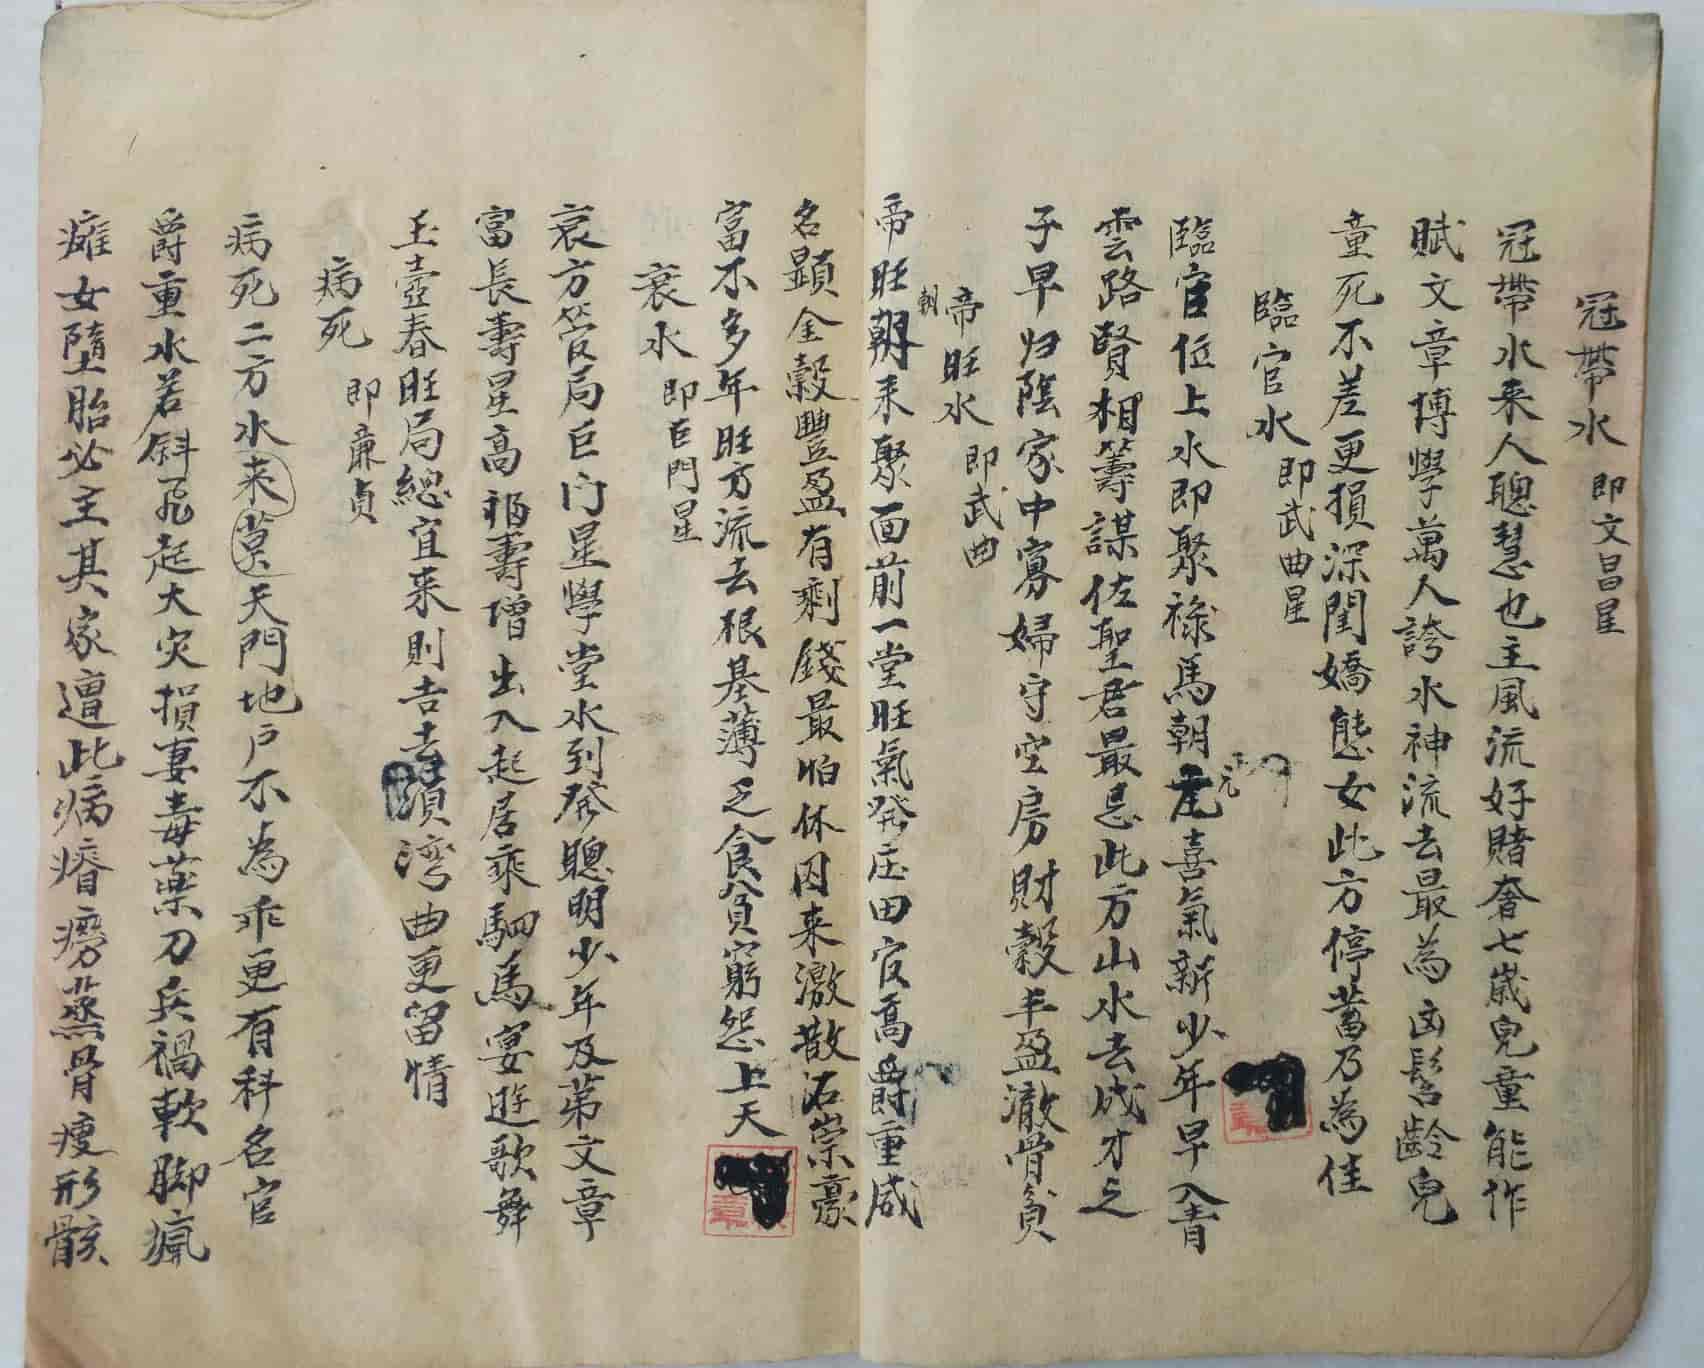 冠帶水 即文昌星
冠帶水来人聰慧也主風流好賭奢七歲兒童能作
賦文章博學萬人誇水神流去最為凶髫齡兒
童死不差更損深閨嬌態女此方停蓄乃為佳
臨官水 即武曲星
臨官位上水即聚祿馬朝元喜氣新少年早入青
雲路賢相籌謀佐聖君最忌此方山水去成才之
子早归陰家中寡婦守空房財穀半盈澈骨貧
帝旺水 即武曲
帝旺朝来聚面前一堂旺氣發庄田官高爵重咸
名顯金穀豐盈有剩錢最怕休囚来激散石崇豪
富不多年旺方流去根基薄乏食貧窮怨上天
衰水 即巨門星
衰方管局巨门星學堂水到發聰明少年及第文章
富長壽星高福壽增出入起居乘駟馬宴遊歌舞
玉壺春旺局總宜来則吉去湾曲更留情
病死 即廉貞
病死二方水来莫天門地户不為乖更有科名官
爵重水若斜飛起大灾損妻毒藥刀兵禍軟脚瘋
癱女墮胎必主其家遭此病瘠癆蒸骨瘦形骸